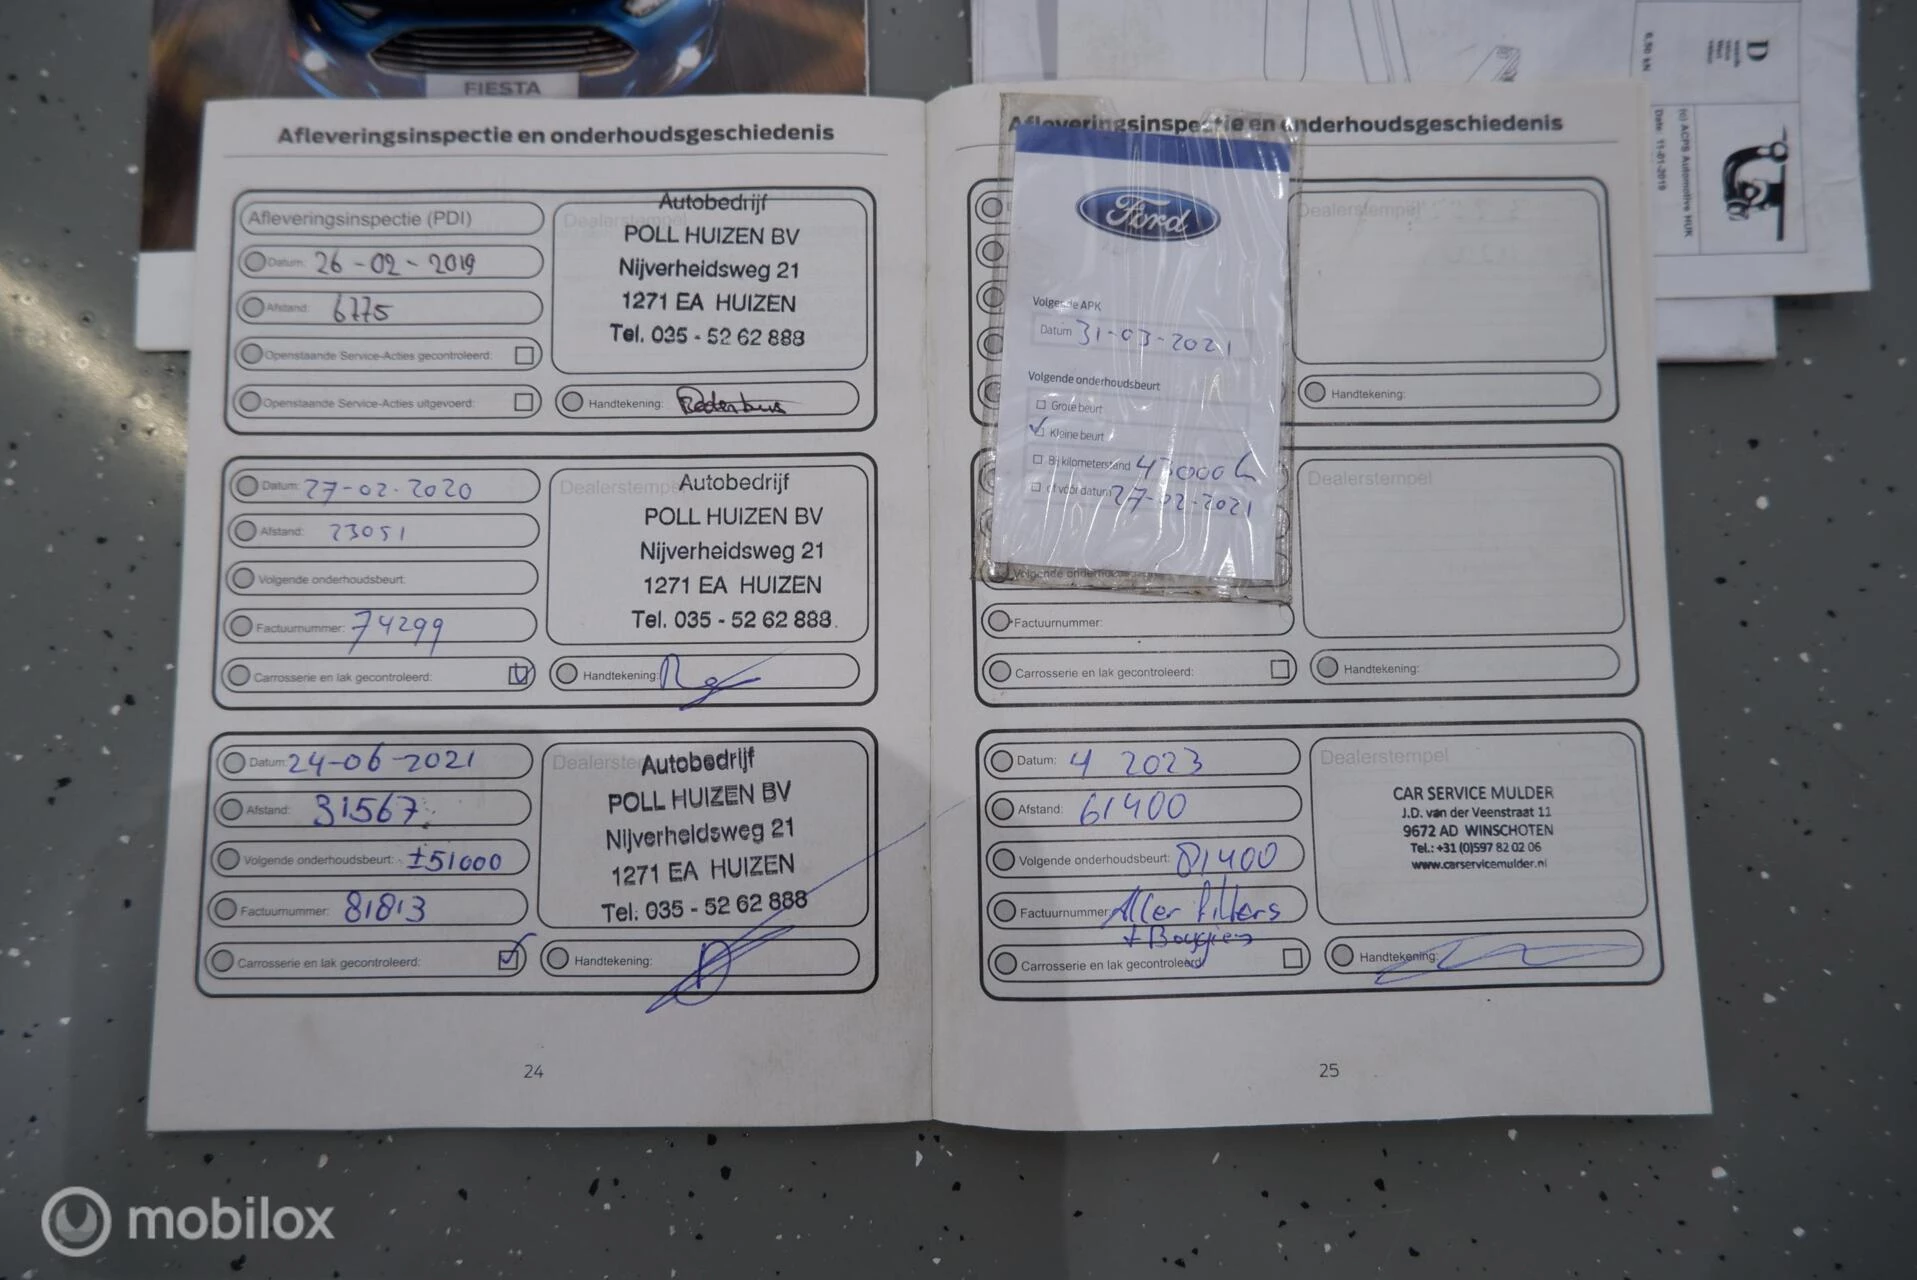 FIESTA
D
6,50 kN
(c) ACPS Automotive HUK
Date: 11-01-2019
Afleveringsinspectie en onderhoudsgeschiedenis
Afleveringsinspectie (PDI)
Datum: 26-02-2019
Afstand: 6775
Openstaande Service-Acties gecontroleerd:
Openstaande Service-Acties uitgevoerd:
Dealerstempel
Autobedrijf
POLL HUIZEN BV
Nijverheidsweg 21
1271 EA HUIZEN
Tel. 035 - 52 62 888
Handtekening:
Datum: 27-02-2020
Afstand: 23051
Volgende onderhoudsbeurt:
Factuurnummer: 74299
Carrosserie en lak gecontroleerd:
Dealerstempel
Autobedrijf
POLL HUIZEN BV
Nijverheidsweg 21
1271 EA HUIZEN
Tel. 035 - 52 62 888
Handtekening:
Datum: 24-06-2021
Afstand: 31567
Volgende onderhoudsbeurt: ±51000
Factuurnummer: 81813
Carrosserie en lak gecontroleerd:
Autobedrijf
POLL HUIZEN BV
Nijverheidsweg 21
1271 EA HUIZEN
Tel. 035 - 52 62 888
Handtekening:
24
Afleveringsinspectie en onderhoudsgeschiedenis
Ford
Volgende APK
Datum 31-03-2021
Volgende onderhoudsbeurt
Grote beurt
Kleine beurt
Bij kilometerstand 43000
of voor datum 27-02-2021
Dealerstempel
Handtekening:
Volgende
Factuurnummer:
Carrosserie en lak gecontroleerd:
Dealerstempel
Handtekening:
Datum: 4 2023
Afstand: 61400
Volgende onderhoudsbeurt: 81400
Factuurnummer: Aller filters
+ Bougies
Carrosserie en lak gecontroleerd:
Dealerstempel
CAR SERVICE MULDER
J.D. van der Veenstraat 11
9672 AD WINSCHOTEN
Tel.: +31 (0)597 82 02 06
www.carservicemulder.nl
Handtekening:
25
mobilox